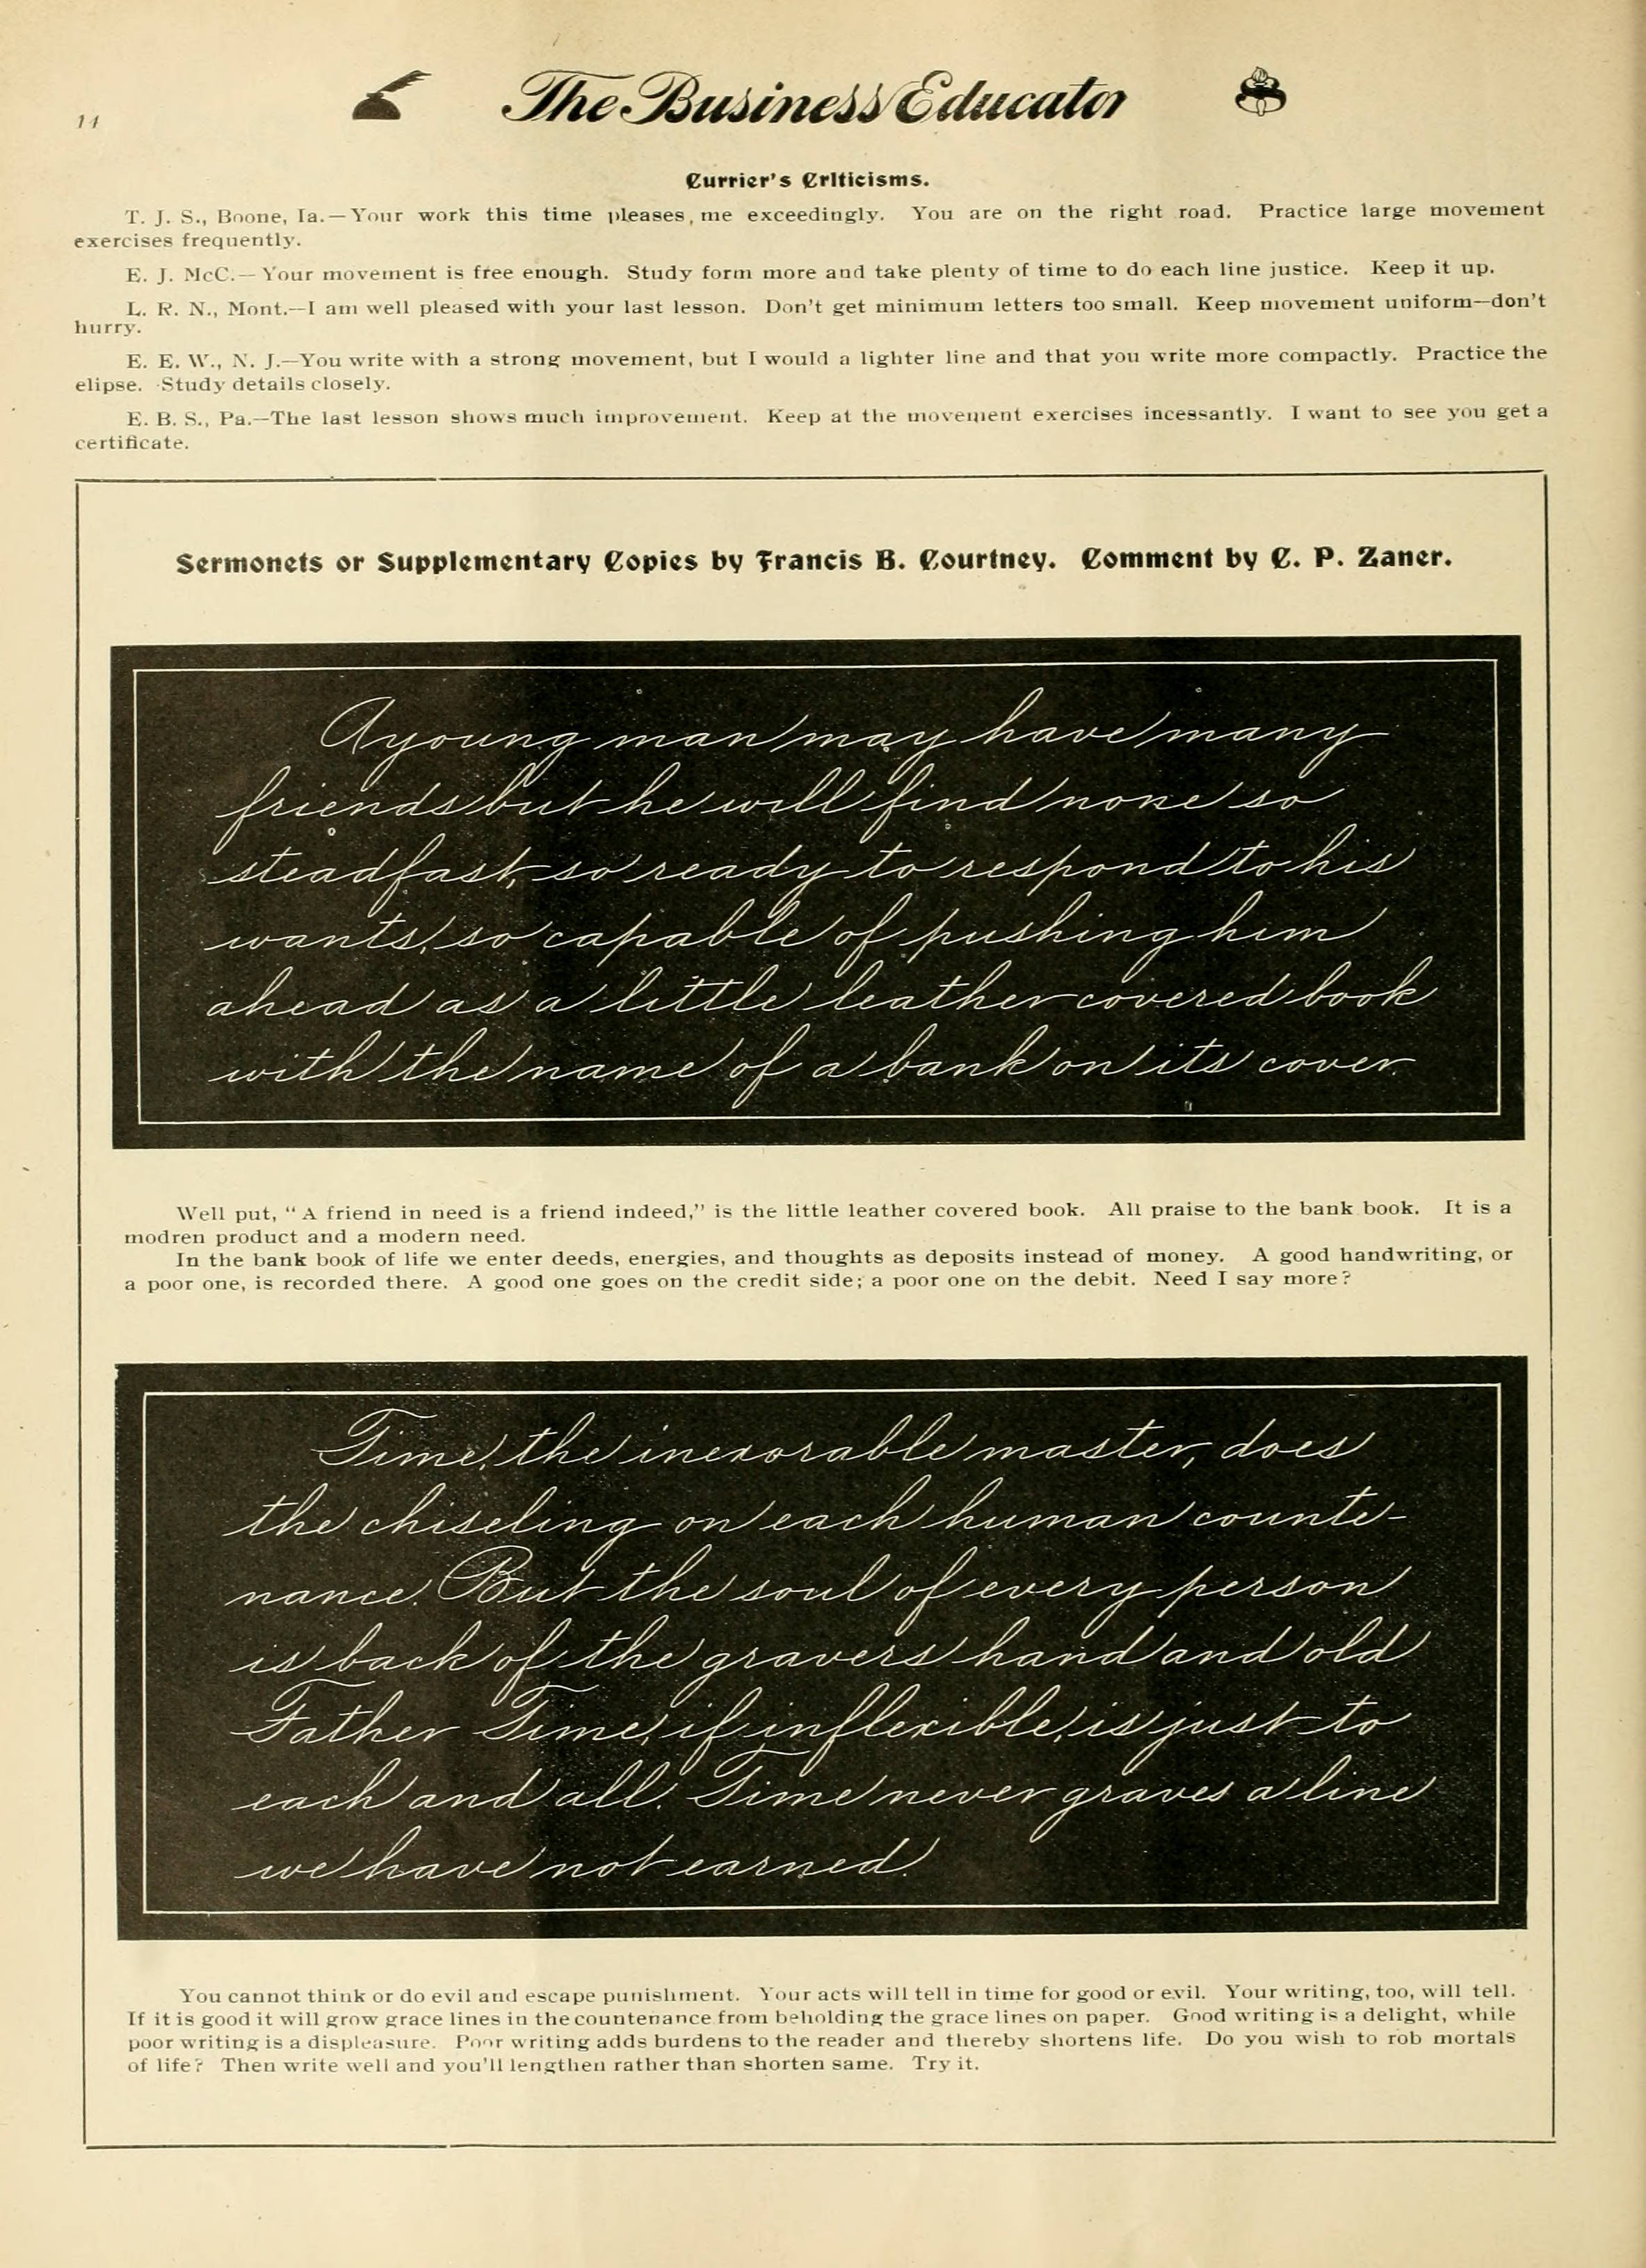 14
The Business Educator
Currier's Criticisms.
T. J. S., Boone, Ia.—Your work this time pleases me exceedingly. You are on the right road. Practice large movement
exercises frequently.
E. J. McC.—Your movement is free enough. Study form more and take plenty of time to do each line justice. Keep it up.
L. R. N., Mont.—I am well pleased with your last lesson. Don't get minimum letters too small. Keep movement uniform—don't
hurry.
E. E. W., N. J.—You write with a strong movement, but I would a lighter line and that you write more compactly. Practice the
elipse. Study details closely.
E. B. S., Pa.—The last lesson shows much improvement. Keep at the movement exercises incessantly. I want to see you get a
certificate.
Sermonets or Supplementary Copies by Francis B. Courtney. Comment by C. P. Zaner.
A young man may have many
friends but he will find none so
steadfast, so ready to respond to his
wants, so capable of pushing him
ahead as a little leather covered book
with the name of a bank on its cover.
Well put, "A friend in need is a friend indeed," is the little leather covered book. All praise to the bank book. It is a
modren product and a modern need.
In the bank book of life we enter deeds, energies, and thoughts as deposits instead of money. A good handwriting, or
a poor one, is recorded there. A good one goes on the credit side; a poor one on the debit. Need I say more?
Time, the inexorable master, does
the chiseling on each human counte-
nance. But the soul of every person
is back of the gravers hand and old
Father Time, if inflexible, is just to
each and all. Time never graves a line
we have not earned.
You cannot think or do evil and escape punishment. Your acts will tell in time for good or evil. Your writing, too, will tell.
If it is good it will grow grace lines in the countenance from beholding the grace lines on paper. Good writing is a delight, while
poor writing is a displeasure. Poor writing adds burdens to the reader and thereby shortens life. Do you wish to rob mortals
of life? Then write well and you'll lengthen rather than shorten same. Try it.